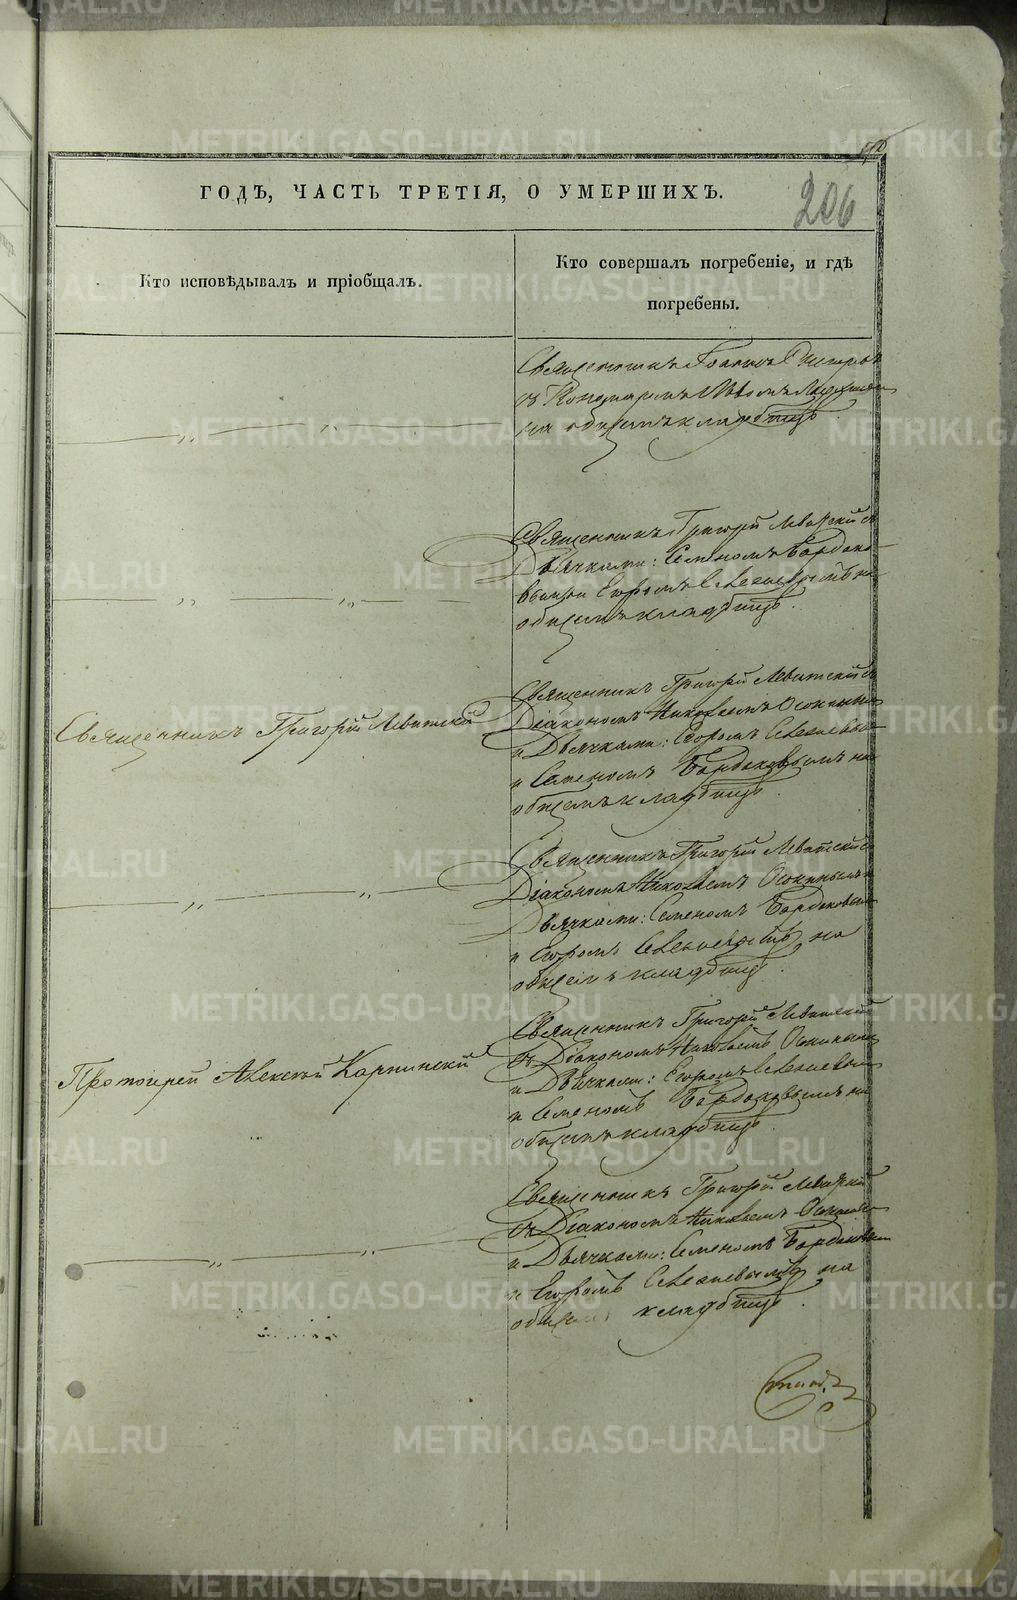 206
ГОДЪ, ЧАСТЬ ТРЕТІЯ, О УМЕРШИХЪ.
Кто исповѣдывалъ и пріобщалъ.
Кто совершалъ погребеніе, и гдѣ
погребены.
Священникъ Іоаннъ
съ Пономаремъ
на общемъ кладбищѣ.
Священникъ Григорій Левитскій съ
Дьячками: Семеномъ Бардако-
вымъ и Егоромъ на
общемъ кладбищѣ.
Священникъ Григорій Левитскій
Священникъ Григорій Левитскій съ
Діакономъ Николаемъ Осокинымъ
и Дьячками: Егоромъ
и Семеномъ Бардаковымъ на
общемъ кладбищѣ.
Священникъ Григорій Левитскій съ
Діакономъ Николаемъ Осокинымъ и
Дьячками: Семеномъ Бардаковымъ
и Егоромъ на
общемъ кладбищѣ.
Протоіерей Алексѣй Карпинскій
Священникъ Григорій Левитскій
съ Діакономъ Николаемъ Осокинымъ
и Дьячками: Егоромъ
и Семеномъ Бардаковымъ на
общемъ кладбищѣ.
Священникъ Григорій Левитскій
съ Діакономъ Николаемъ Осокинымъ
и Дьячками: Семеномъ Бардаковымъ
и Егоромъ на
общемъ кладбищѣ.
METRIKI.GASO-URAL.RU